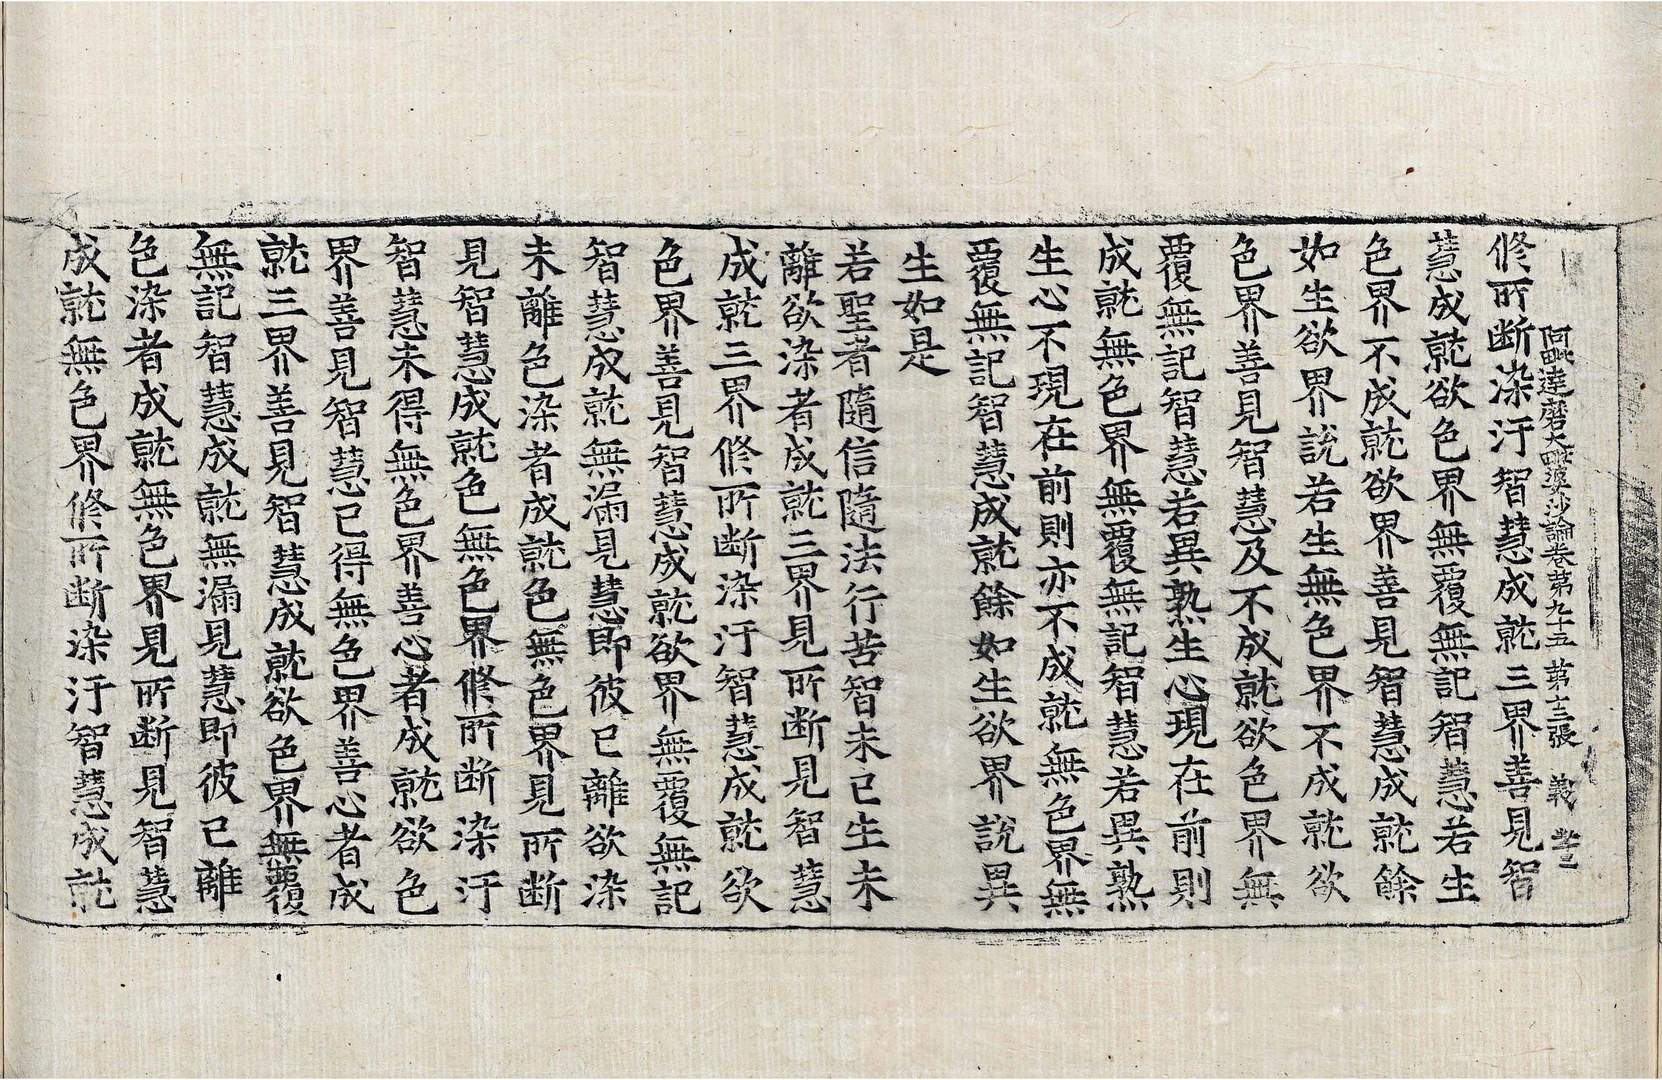 阿毗達磨大毗婆沙論卷第九十五 第十三張 義
修所断染汙智慧成就三界善見智
慧成就欲色界無覆無記智慧若生
色界不成就欲界善見智慧成就餘
如生欲界說若生無色界不成就欲
色界善見智慧及不成就欲色界無
覆無記智慧若異熟生心現在前則
成就無色界無覆無記智慧若異熟
生心不現在前則亦不成就無色界無
覆無記智慧成就餘如生欲界說異
生如是
若聖者隨信隨法行苦智未已生未
離欲染者成就三界見所断見智慧
成就三界修所断染汙智慧成就欲
色界善見智慧成就欲界無覆無記
智慧成就無漏見慧即彼已離欲染
未離色染者成就色無色界見所断
見智慧成就色無色界修所断染汙
智慧未得無色界善心者成就欲色
界善見智慧已得無色界善心者成
就三界善見智慧成就欲色界無覆
無記智慧成就無漏見慧即彼已離
色染者成就無色界見所断見智慧
成就無色界修所断染汙智慧成就